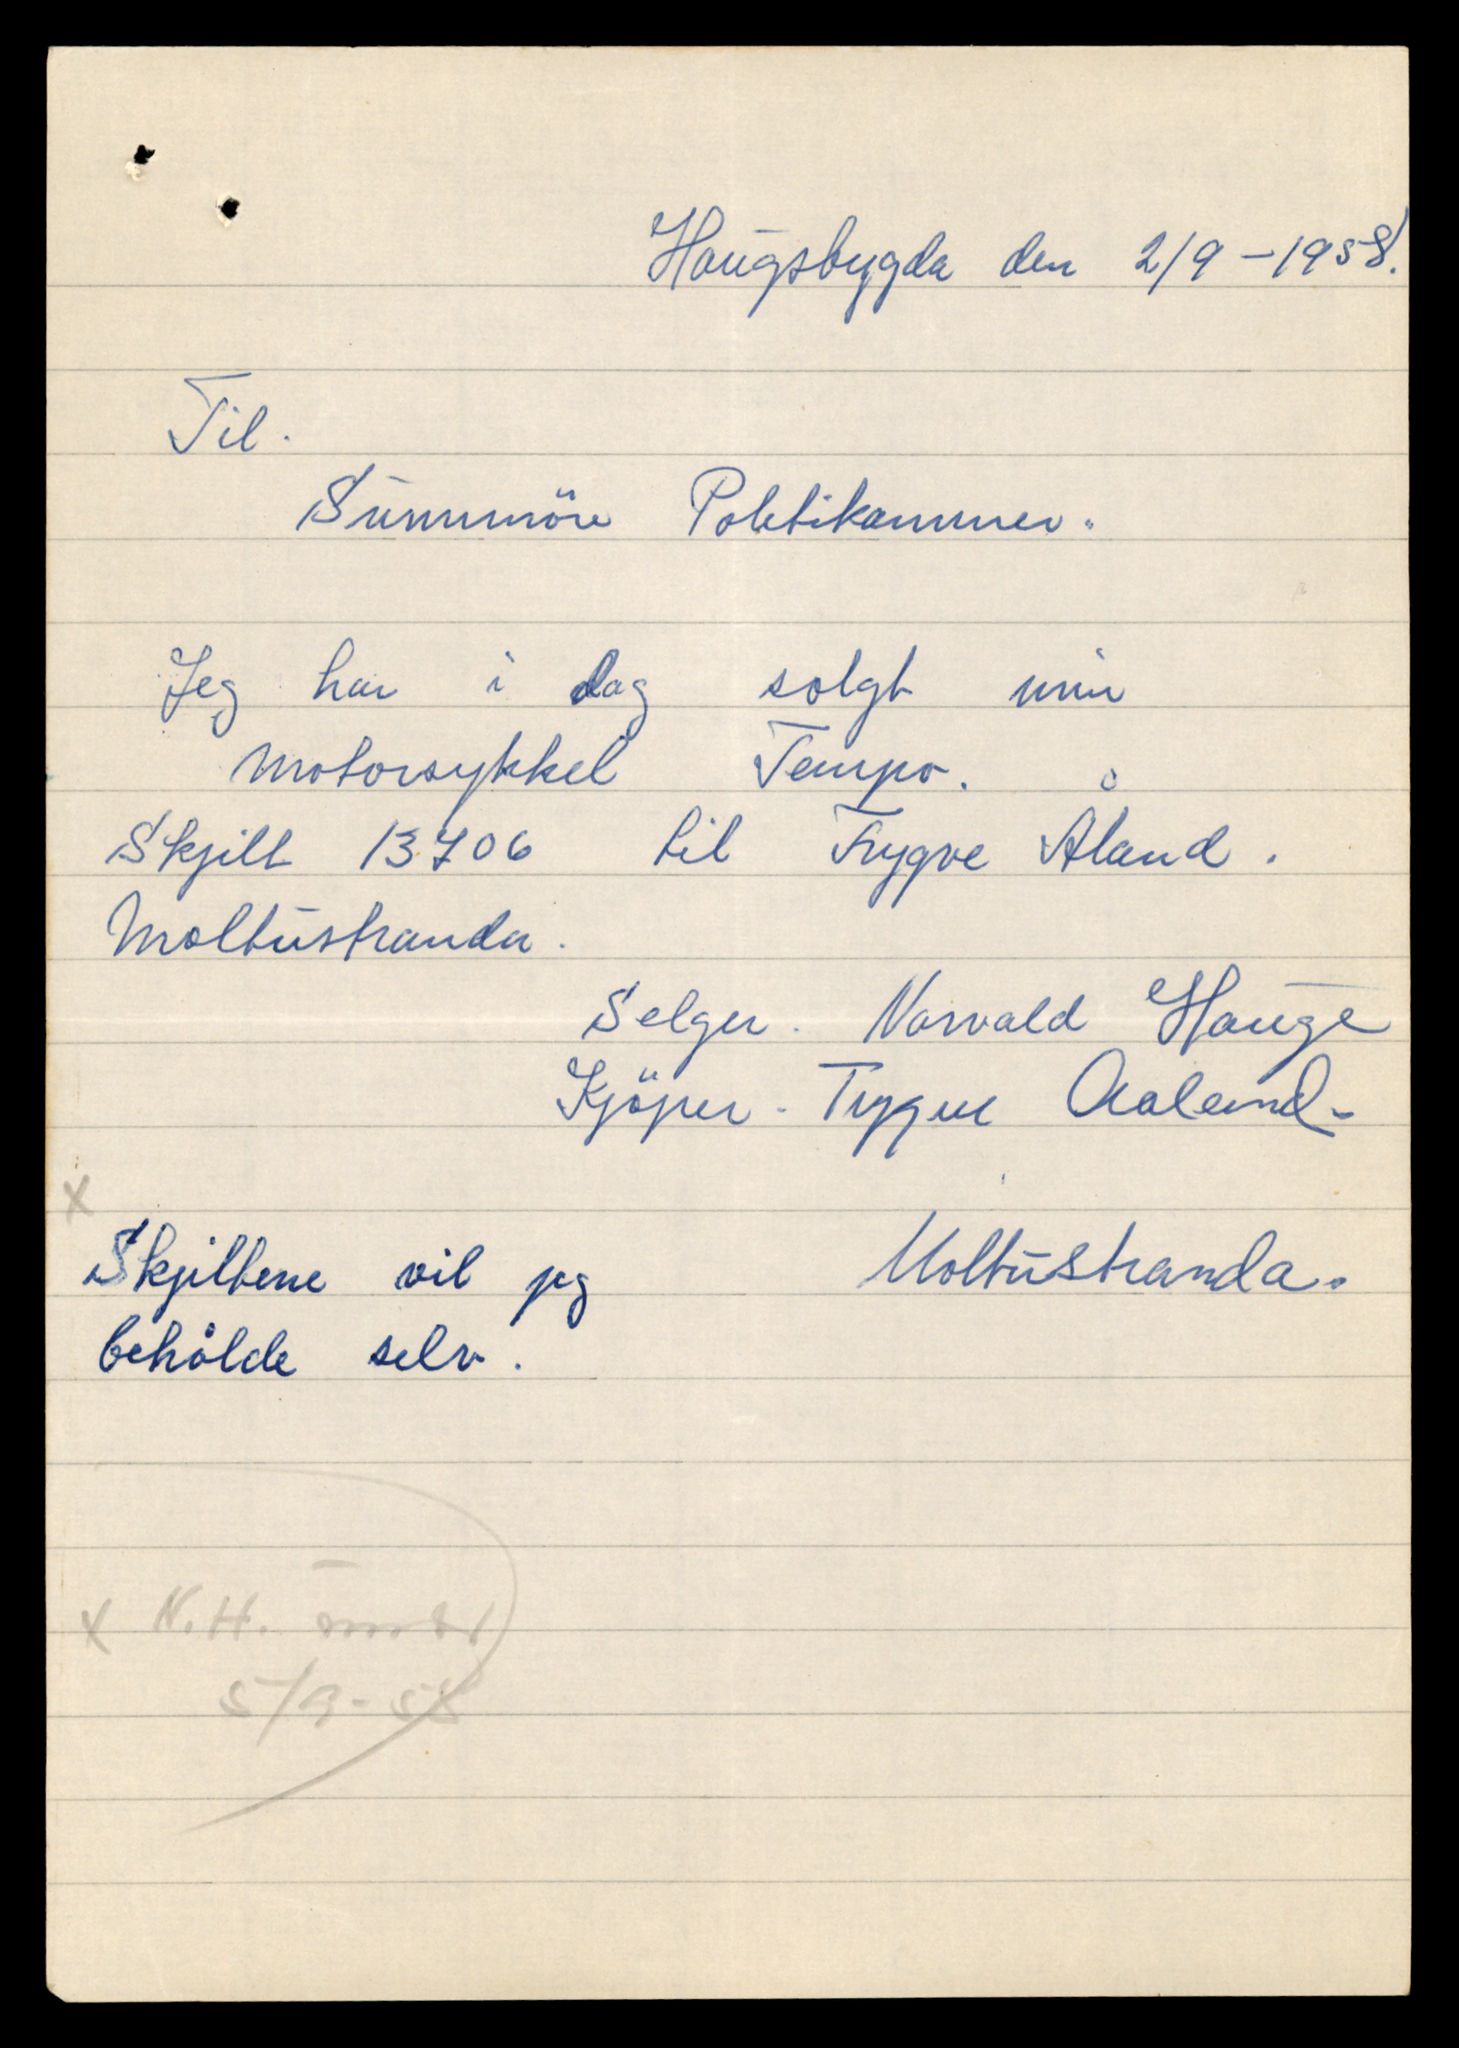 Haugsbygda den 2/9-1958.
Til.
Sunnmöre Politikammer.
Jeg har i dag solgt min
motorsykkel Tempo.
Skjilt 13706 til Trygve Åland.
Moltustranda.
Selger. Norvald Hauge
Kjöper. Trygve Aaland.
x
Skjiltene vil jeg Moltustranda.
behålde selv.
x N.H.
5/9-58